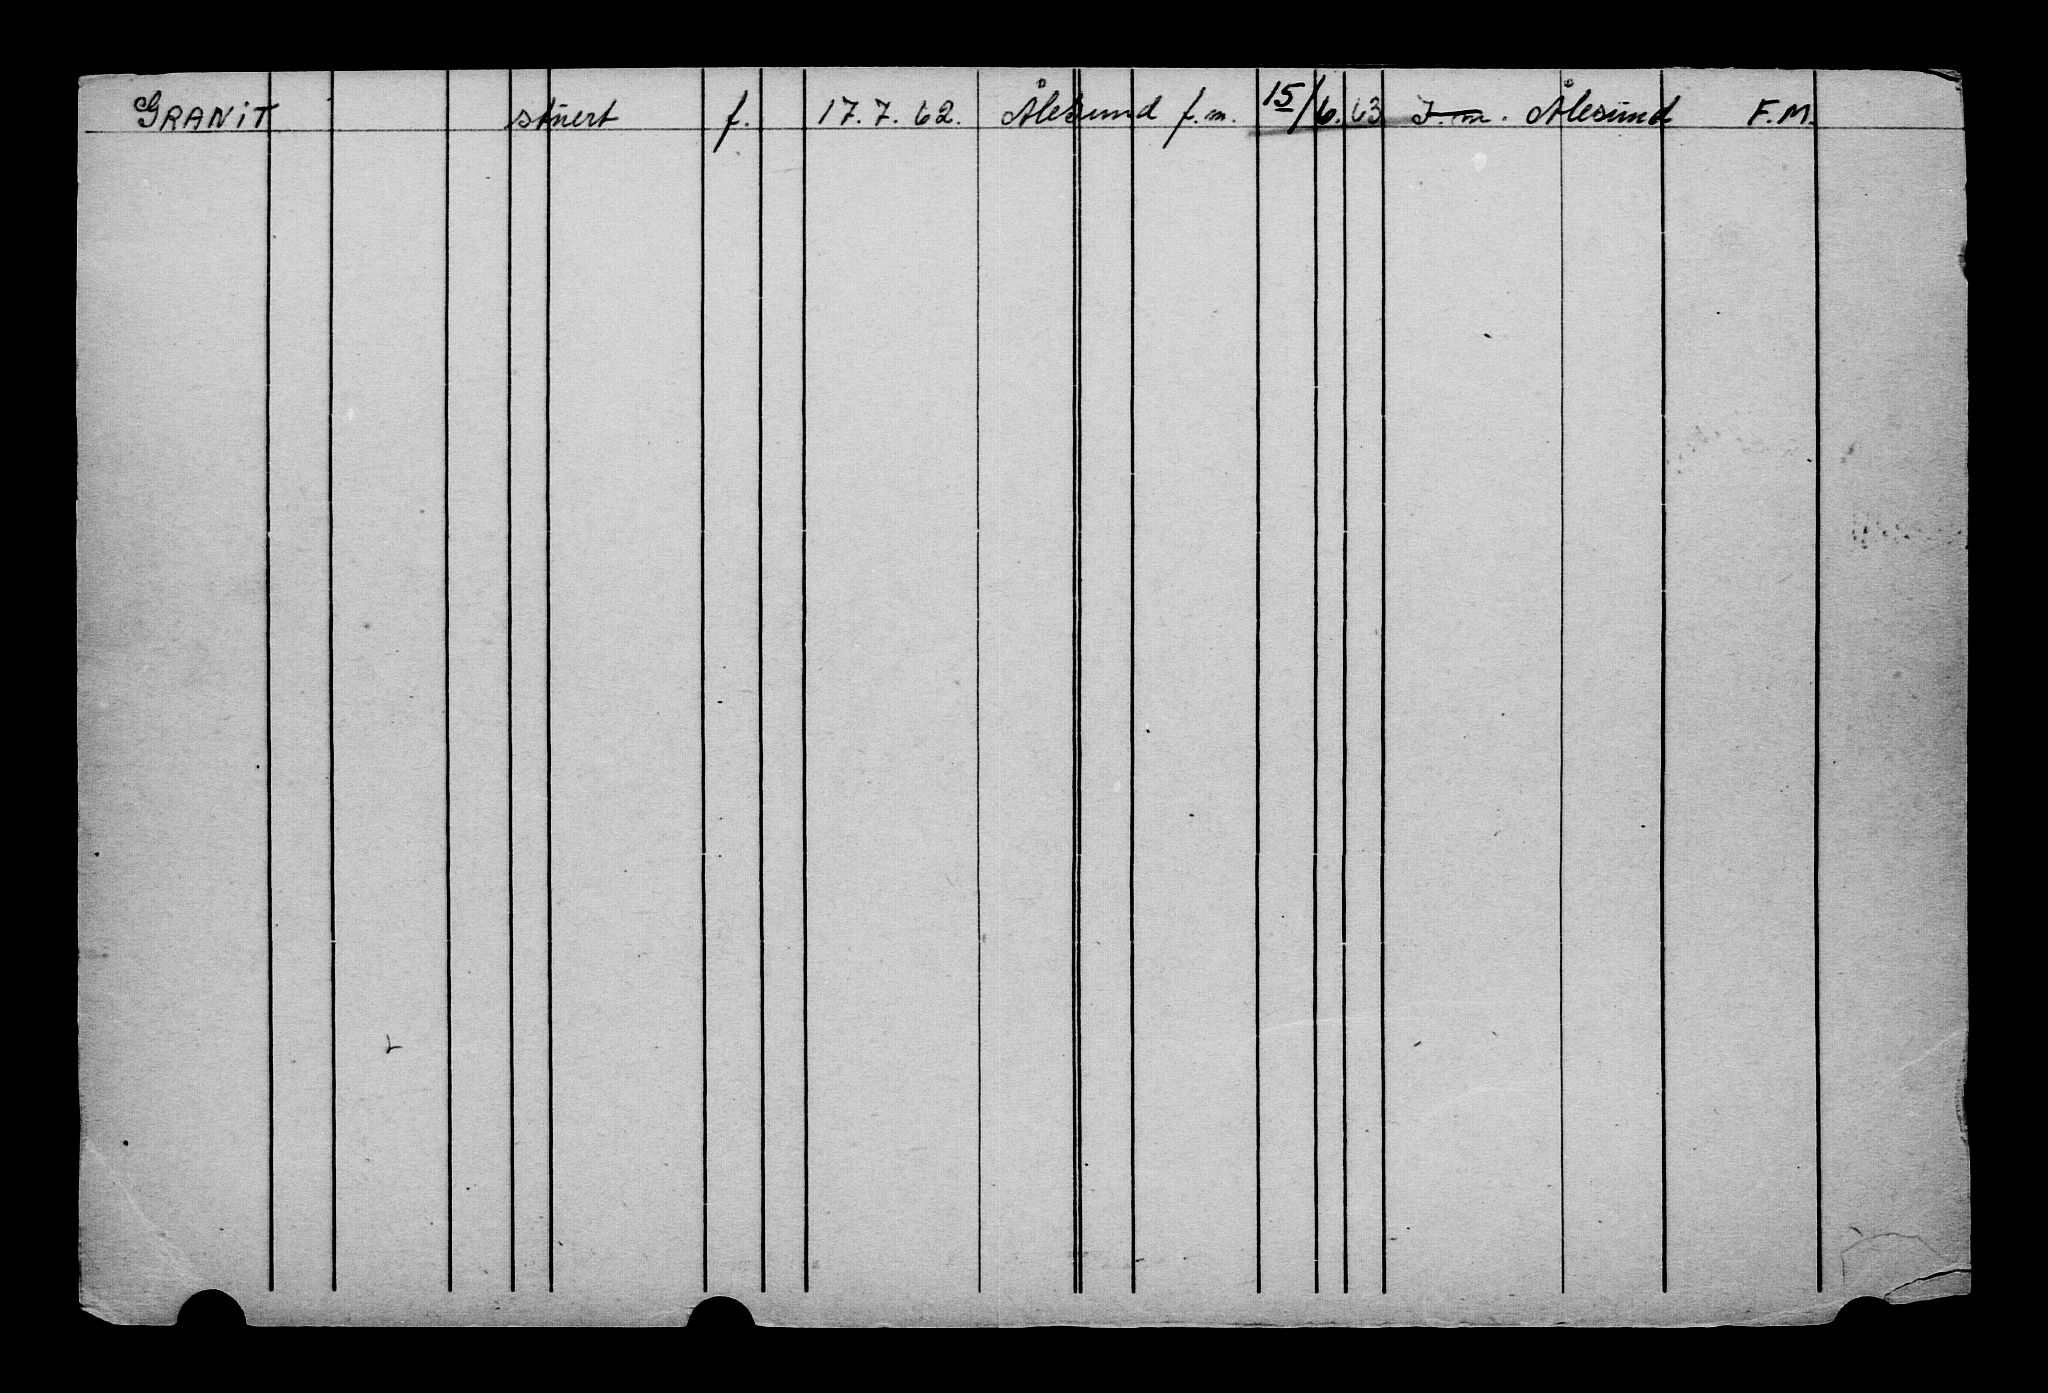 GRANiT stuert f. 17.7.62. Ålesund f.m. 15/6.63 Ålesund F.M.